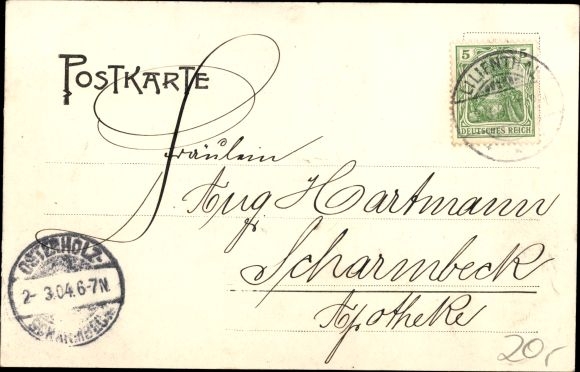 POSTKARTE
5 5
DEUTSCHES REICH
LILIENTHAL
Fräulein
Aug. Hartmann
Scharmbeck
Apotheke
OSTERHOLZ-
2- 3.04.6-7N.
SCHARMBECK
20,-